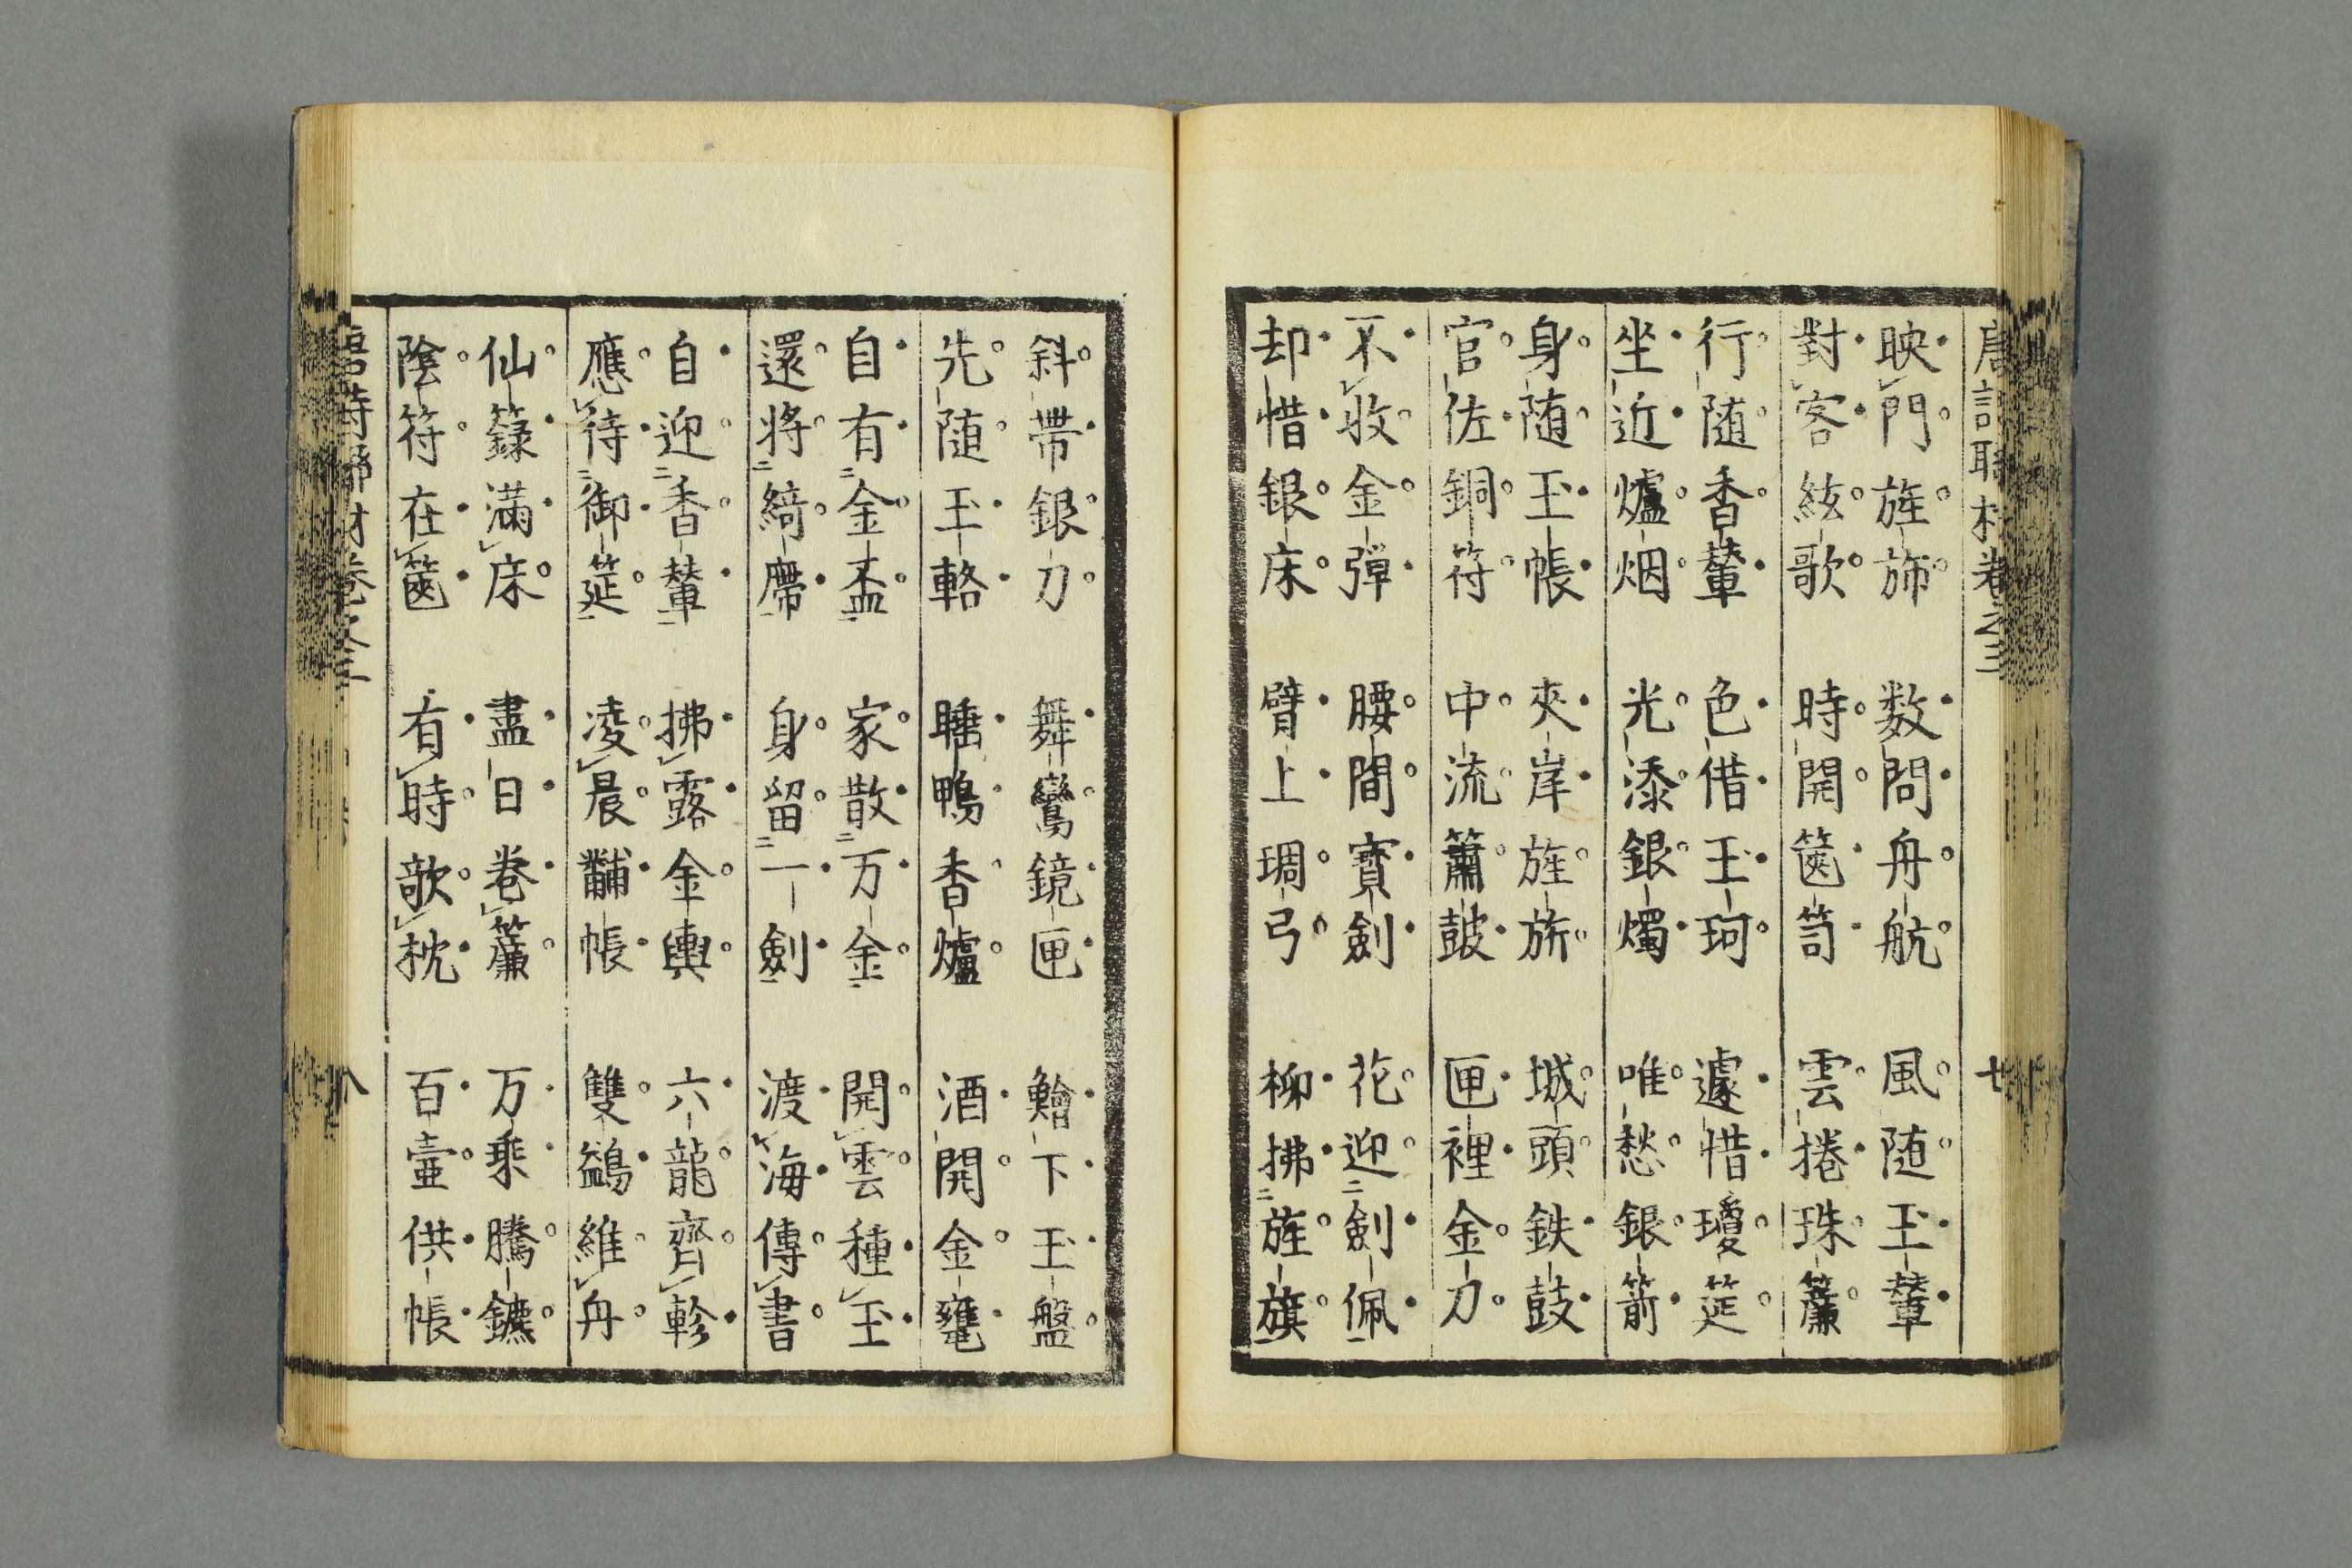 唐詩聯材卷之三 七
映門旌斾 数問舟航 風随玉輦
對客絃歌 時開篋笥 雲捲珠簾
行随香輦 色借玉珂 遽惜瓊筵
坐近爐烟 光添銀燭 唯愁銀箭
身随玉帳 夾岸旌旂 城頭鉄鼓
官佐銅符 中流簫鼓 匣裡金刀
不收金彈 腰間寳劍 花迎劍佩
却惜銀床 臂上琱弓 柳拂旌旗
斜帶銀刀 舞鸞鏡匣 鱠下玉盤
先随玉輅 睡鴨香爐 酒開金甕
自有金盃 家散万金 開雲種玉
還將綺席 身留一劍 渡海傳書
自迎香輦 拂露金輿 六龍齊軫
應待御筵 凌晨黼帳 雙鷁維舟
仙籙滿床 盡日卷簾 万乗騰鑣
陰符在篋 有時欹枕 百壷供帳
唐詩聯材卷之三 八